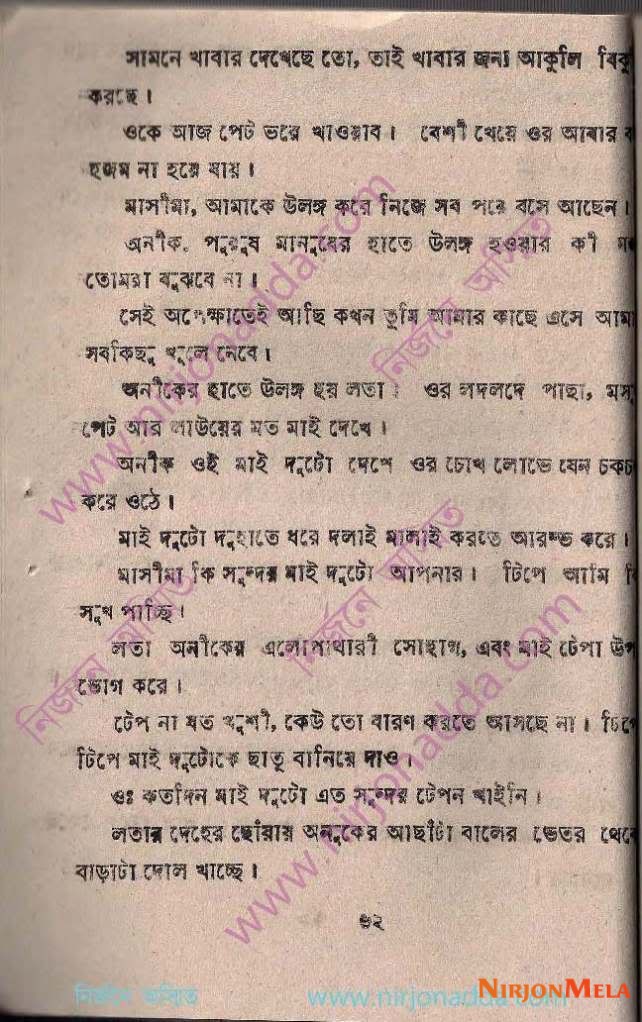 সামনে খাবার দেখেছে তো, তাই খাবার জন্য আকুলি বিকু
করছে।
ওকে আজ পেট ভরে খাওয়াব। বেশী খেয়ে ওর আবার ব
হজম না হয়ে যায়।
মাসীমা, আমাকে উলঙ্গ করে নিজে সব পরে বসে আছেন।
অনীক, পুরুষ মানুষের হাতে উলঙ্গ হওয়ার কী
তোমরা বুঝবে না।
সেই অপেক্ষাতেই আছি কখন তুমি আমার কাছে এসে আমা
সবকিছু খুলে নেবে।
অনীকের হাতে উলঙ্গ হয় লতা। ওর লদলদে পাছা, মসৃ
পেট আর লাউয়ের মত মাই দেখে।
অনীক ওই মাই দুটো দেখে ওর চোখ লোভে যেন চকচ
করে ওঠে।
মাই দুটো দুহাতে ধরে দলাই মালাই করতে আরম্ভ করে।
মাসীমা কি সুন্দর মাই দুটো আপনার। টিপে আমি কি
সুখ পাচ্ছি।
লতা অনীকের এলোপাথারী সোহাগ, এবং মাই টেপা উপ
ভোগ করে।
টেপ না যত খুশী, কেউ তো বারণ করতে আসছে না। টিপে
টিপে মাই দুটোকে ছাতু বানিয়ে দাও।
ওঃ কতদিন মাই দুটো এত সুন্দর টেপন খাইনি।
লতার দেহের ছোঁয়ায় অনুকের আছাঁটা বালের ভেতর থেকে
বাড়াটা দোল খাচ্ছে।
৩২
www.nirjonadda.com
নির্জনে অস্মিত
নির্জনে অস্মিত
নির্জনে অস্মিত
www.nirjonadda.com
নির্জনে অস্মিত
www.nirjonadda.com
NIRJONMELA